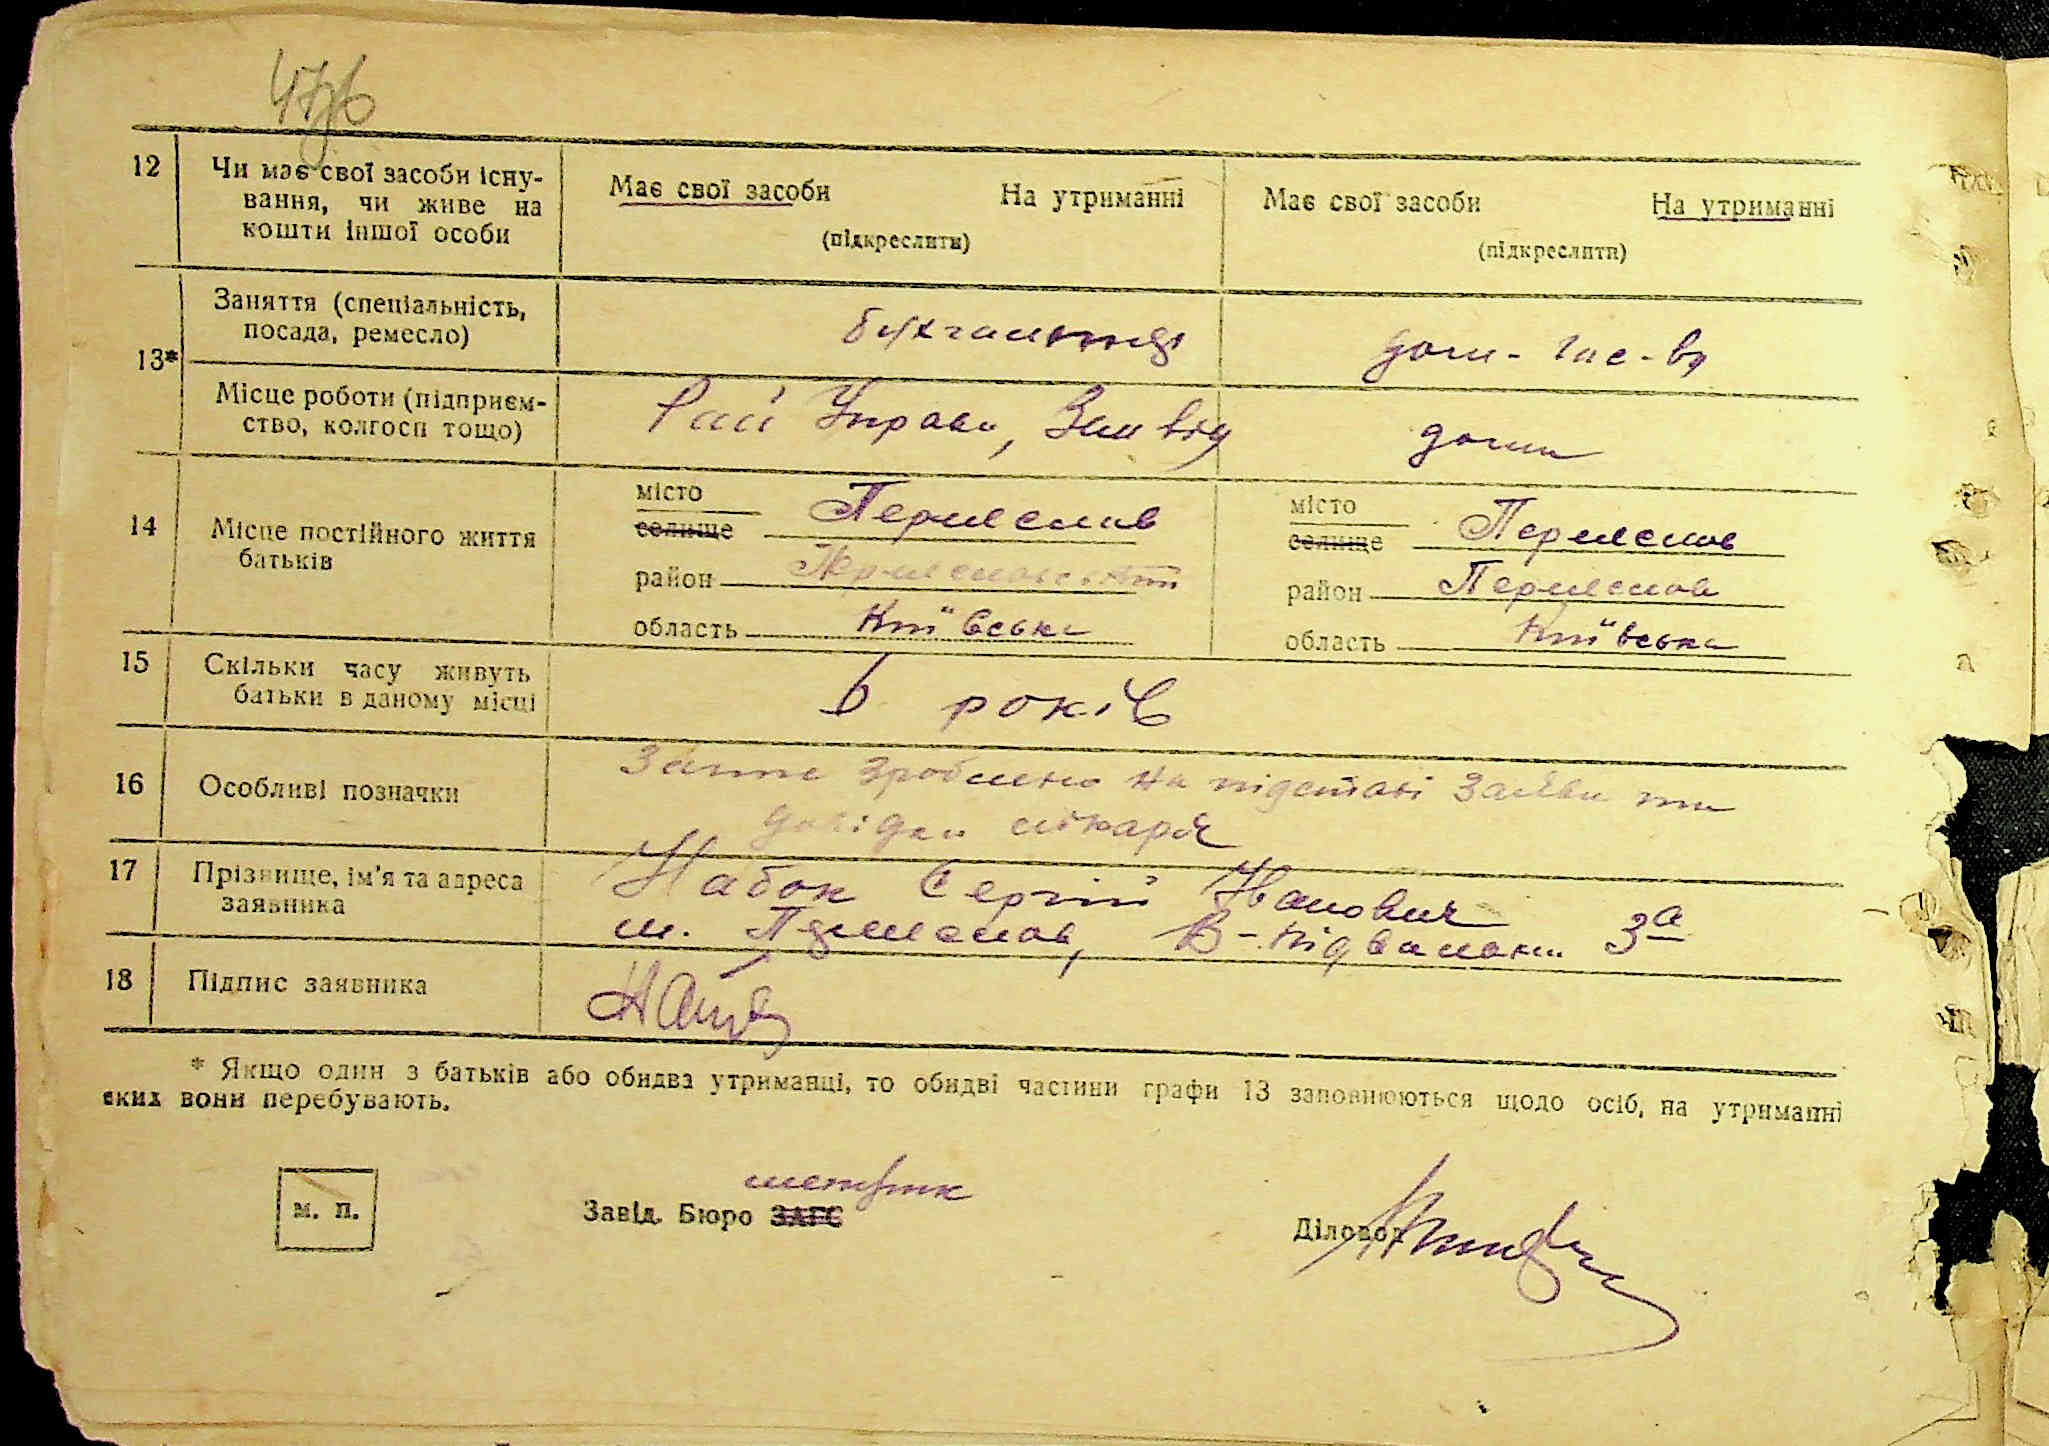 12
Чи має свої засоби існу-
вання, чи живе на
кошти іншої особи
Має свої засоби На утриманні
(підкреслити)
Має свої засоби На утриманні
(підкреслити)
13*
Заняття (спеціальність,
посада, ремесло)
бухгалтер
дом-гос-ва
Місце роботи (підприєм-
ство, колгосп тощо)
Рай Управа,
дома
14
Місце постійного життя
батьків
місто
селище Переяслав
район Переяславський
область Київська
місто
селище Переяслав
район Переяслав
область Київська
15
Скільки часу живуть
батьки в даному місці
6 років
16
Особливі позначки
Запис зроблено на підставі заяви та
довідки лікаря
17
Прізвище, ім'я та адреса
заявника
Набок Сергій Іванович
м. Переяслав, В-Підвальна 3а
18
Підпис заявника
* Якщо один з батьків або обидва утриманці, то обидві частини графи 13 заповнюються щодо осіб, на утриманні
яких вони перебувають.
м. п.
метрик
Завід. Бюро ЗАГС
Діловод